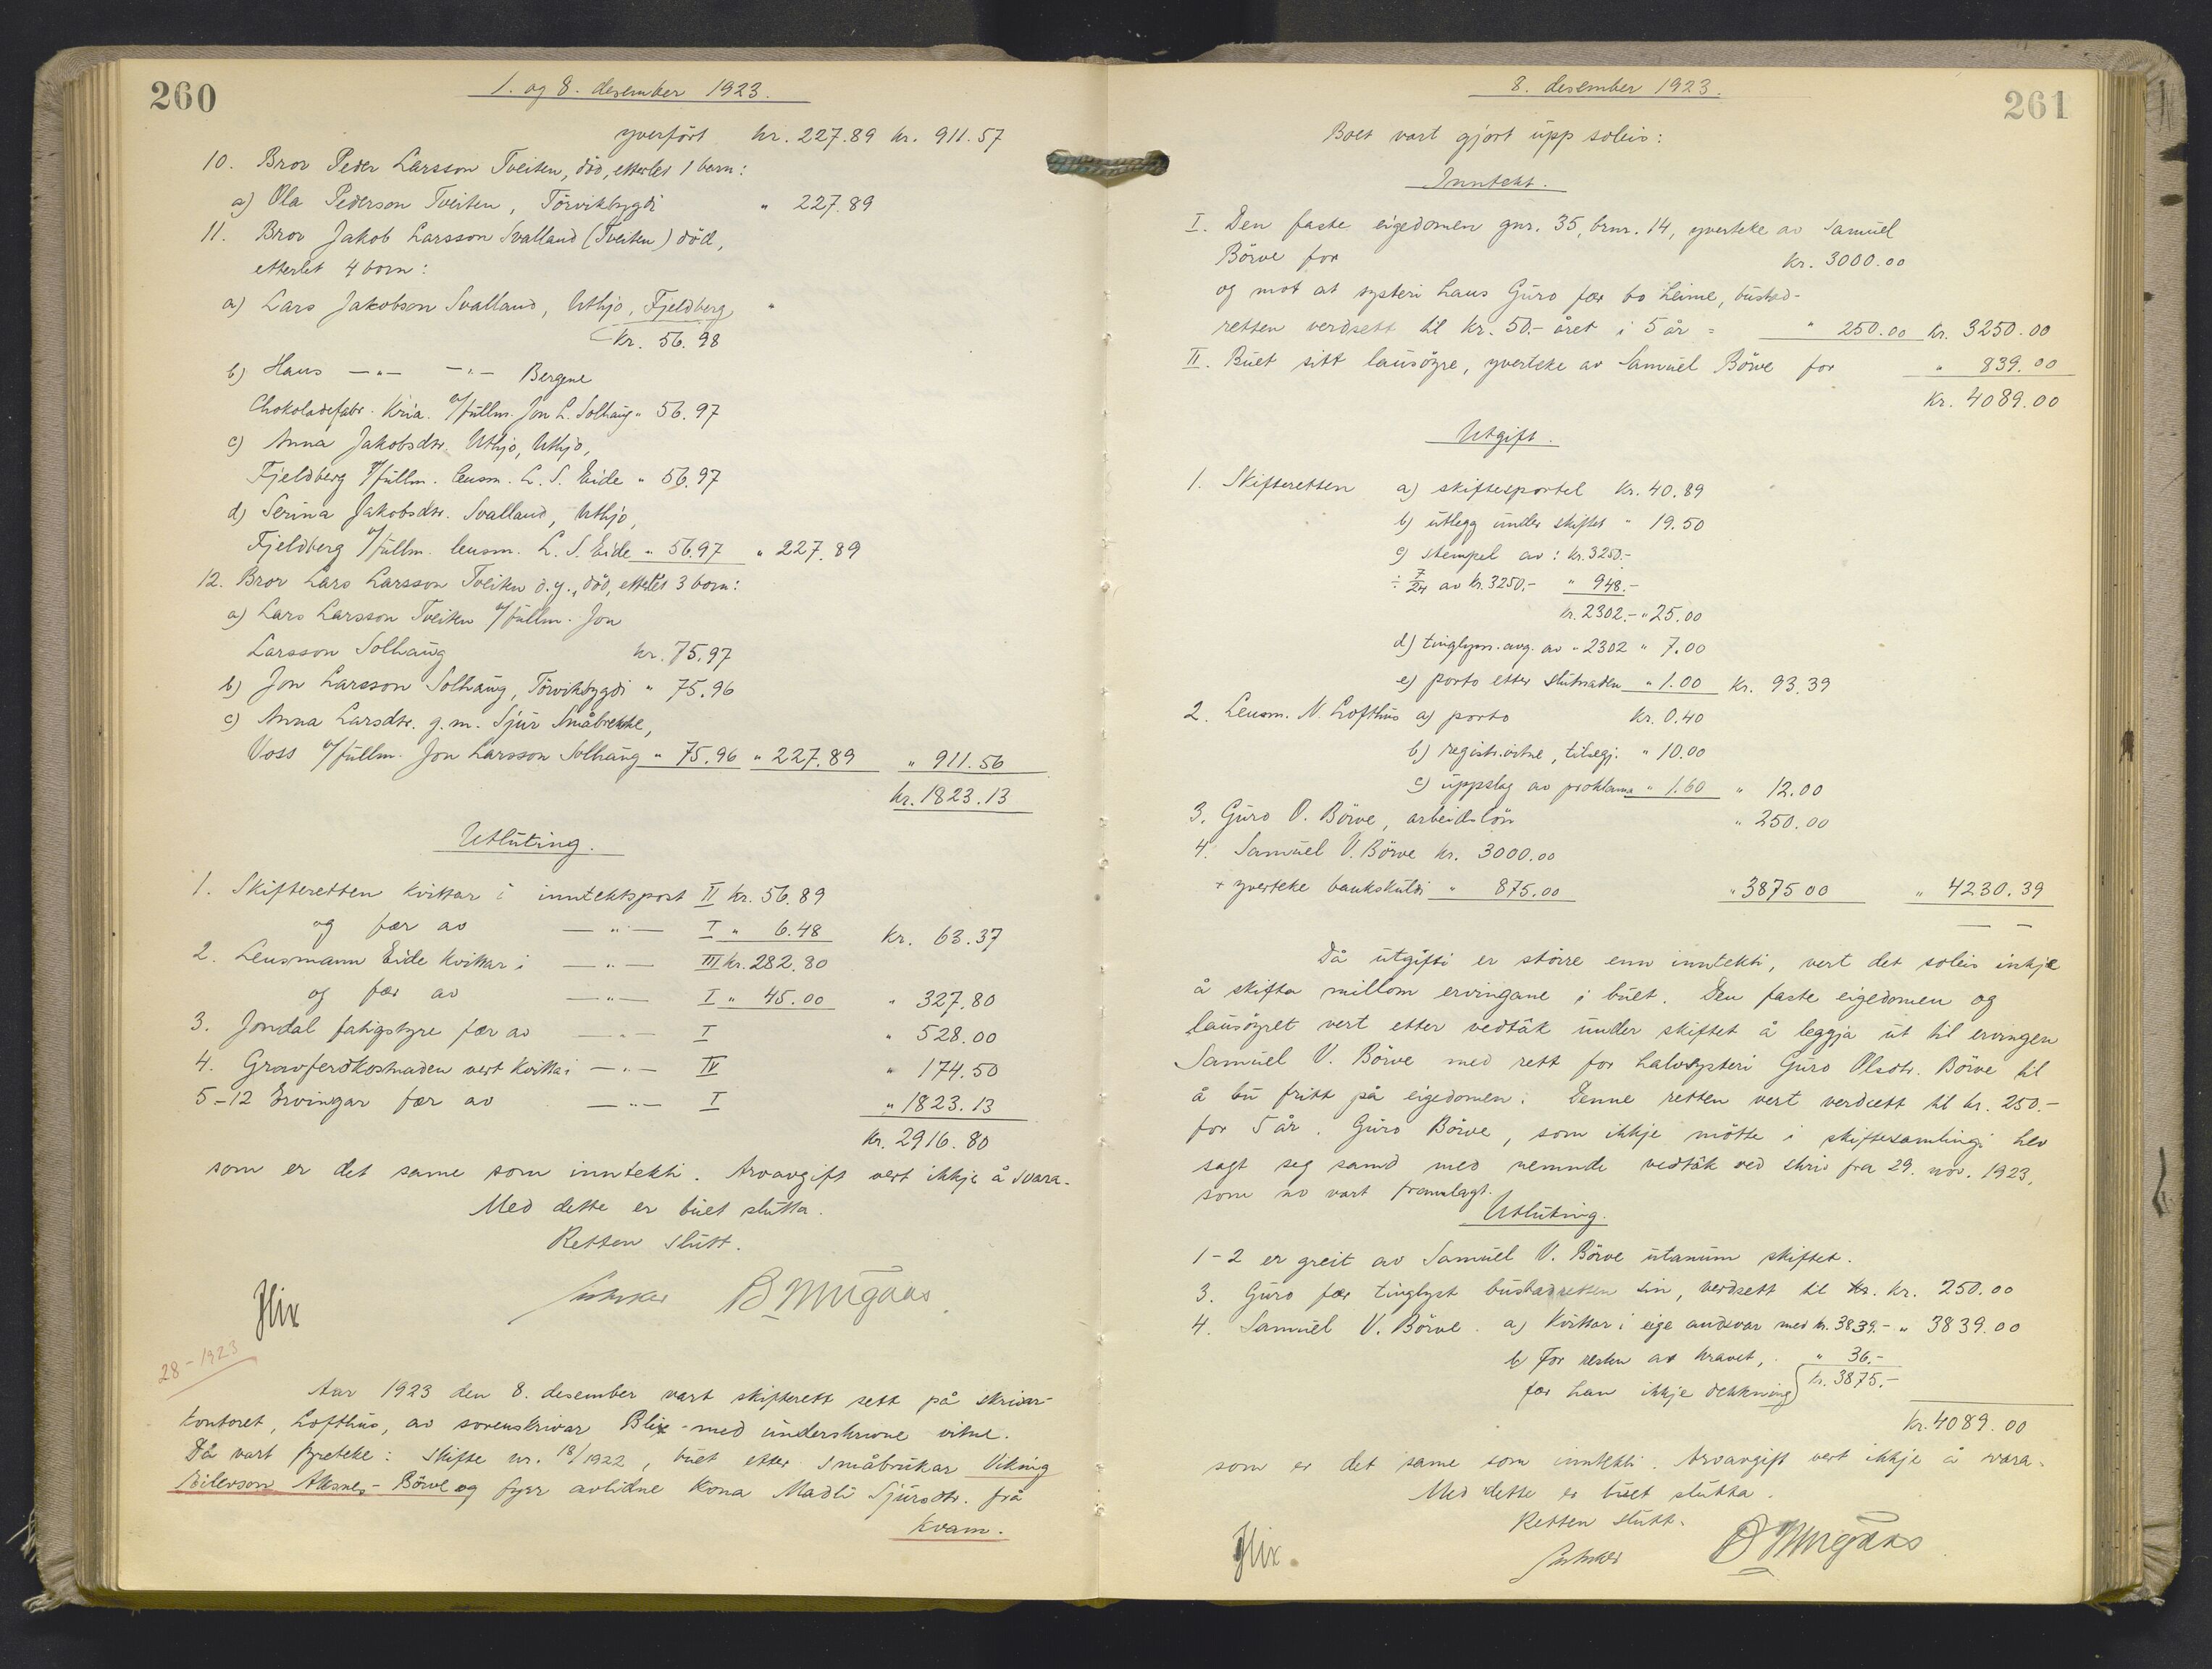 260
1. og 8. desember 1923.
yverfört kr. 227.89 kr. 911.57
10. Bror Peder Larsson Tveiten, död, etterlet 1 barn:
a) Ola Pederson Tveiten, Törvikbygdi " 227.89
11. Bror Jakob Larsson Svalland (Tveiten) död,
etterlet 4 born:
a) Lars Jakobson Svalland, Uthjo, Fjeldberg "
kr. 56.98
b) Hans —"— —"— Bergene
Chokoladefabr. Kria. v/fullm. Jon L. Solhaug " 56.97
c) Anna Jakobsdtr. Uthjo, Uthjo,
Fjeldberg v/fullm. lensm. L. S. Eide " 56.97
d) Serina Jakobsdtr. Svalland, Uthjo,
Fjeldberg v/fullm. lensm. L. S. Eide " 56.97 " 227.89
12. Bror Lars Larsson Tveiten d.y., död, etterlet 3 born:
a) Lars Larsson Tveiten v/fullm. Jon
Larsson Solhaug kr. 75.97
b) Jon Larsson Solhaug, Törvikbygdi " 75.96
c) Anna Larsdtr. g.m. Sjur Småbrekke,
Voss v/fullm. Jon Larsson Solhaug " 75.96 " 227.89 " 911.56
kr. 1823.13
Utluting.
1. Skifteretten kvittar i inntektspost II kr. 56.89
og fær av —"— I " 6.48 kr. 63.37
2. Lensmann Eide kvittar i —"— III kr. 282.80
og fær av —"— I " 45.00 " 327.80
3. Jondal fatigstyre fær av —"— I " 528.00
4. Gravferdkostnaden vert kvitta i —"— IV " 174.50
5-12 Ervingar fær av —"— I " 1823.13
kr. 2916.80
som er det same som inntekti. Arvavgift vert ikkje å svara.
Med dette er buet slutta.
Retten slutt.
Blix
28-1923
Aar 1923 den 8. desember vart skifterett sett på skrivar-
kontoret, Lofthus, av sorenskrivar Blix med underskrivne vitne.
Då vart fyreteke: Skifte nr. 18/1922, buet etter småbrukar Viking
Eilevson Aksnes-Börve og fyrr avlidne kona Madli Sjursdtr. frå
Kvam.
8. desember 1923.
261
Boet vart gjort upp soleis:
Inntekt.
I. Den faste eigedomen gnr. 35, brnr. 14, yverteke av Samuel
Börve for kr. 3000.00
og mot at systeri hans Guro fær bo heime, bustad-
retten verdsett til kr. 50.- året i 5 år = " 250.00 kr. 3250.00
II. Buet sitt lausöyre, yverteke av Samuel Börve for " 839.00
Kr. 4089.00
Utgift.
1. Skifteretten a) skiftesportel kr. 40.89
b) utlegg under skiftet " 19.50
c) stempel av: kr. 3250.-
÷ 7/24 av kr. 3250.- " 948.-
kr. 2302.- " 25.00
d) tinglysn. avg. av " 2302 " 7.00
e) porto etter slutnaden " 1.00 kr. 93.39
2. Lensm. N. Lofthus a) porto kr. 0.40
b) registr.vitne, tilsegj. " 10.00
c) uppslag av proklama " 1.60 " 12.00
3. Guro O. Börve, arbeidslön " 250.00
4. Samuel V. Börve kr. 3000.00
+ yverteke bankskuldi " 875.00 " 3875 00 " 4230.39
Då utgifti er större enn inntekti, vert det soleis inkje
å skifta millom ervingane i buet. Den faste eigedomen og
lausöyret vert etter vedtak under skiftet å leggja ut til ervingen
Samuel V. Börve med rett for halvsysteri Guro Olsdtr. Börve til
å bu fritt på eigedomen. Denne retten vert verdsett til kr. 250.-
for 5 år. Guro Börve, som ikkje mötte i skiftesamlingi hev
sagt seg samd med nemnde vedtak ved skriv fra 29. nov. 1923,
som no vart framlagt.
Utluting.
1-2 er greit av Samuel V. Börve utanum skiftet.
3. Guro fær tinglyst bustadretten sin, verdsett til kr. kr. 250.00
4. Samuel V. Börve. a) kvittar i eige andsvar med kr. 3839.- " 3839.00
b) For resten av kravet, " 36.-
fær han ikkje dekkning kr. 3875.-
kr. 4089.00
som er det same som inntekti. Arvavgift vert ikkje å svara.
Med dette er buet slutta.
Retten slutt.
Blix.